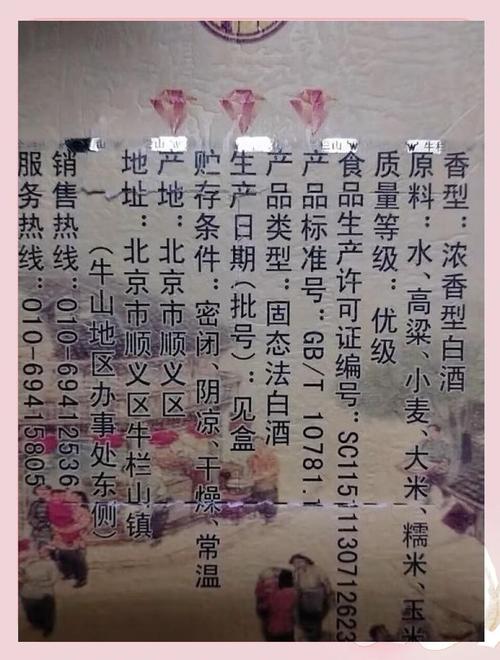 香型：浓香型白酒
原料：水、高粱、小麦、大米、糯米、玉米
质量等级：优级
食品生产许可证编号：SC11511130712623
产品标准号：GB/T 10781.1
产品类型：固态法白酒
生产日期(批号)：见盒
贮存条件：密闭、阴凉、干燥、常温
产地：北京市顺义区
地址：北京市顺义区牛栏山镇
(牛山地区办事处东侧)
销售热线：010-69412536
服务热线：010-69415805